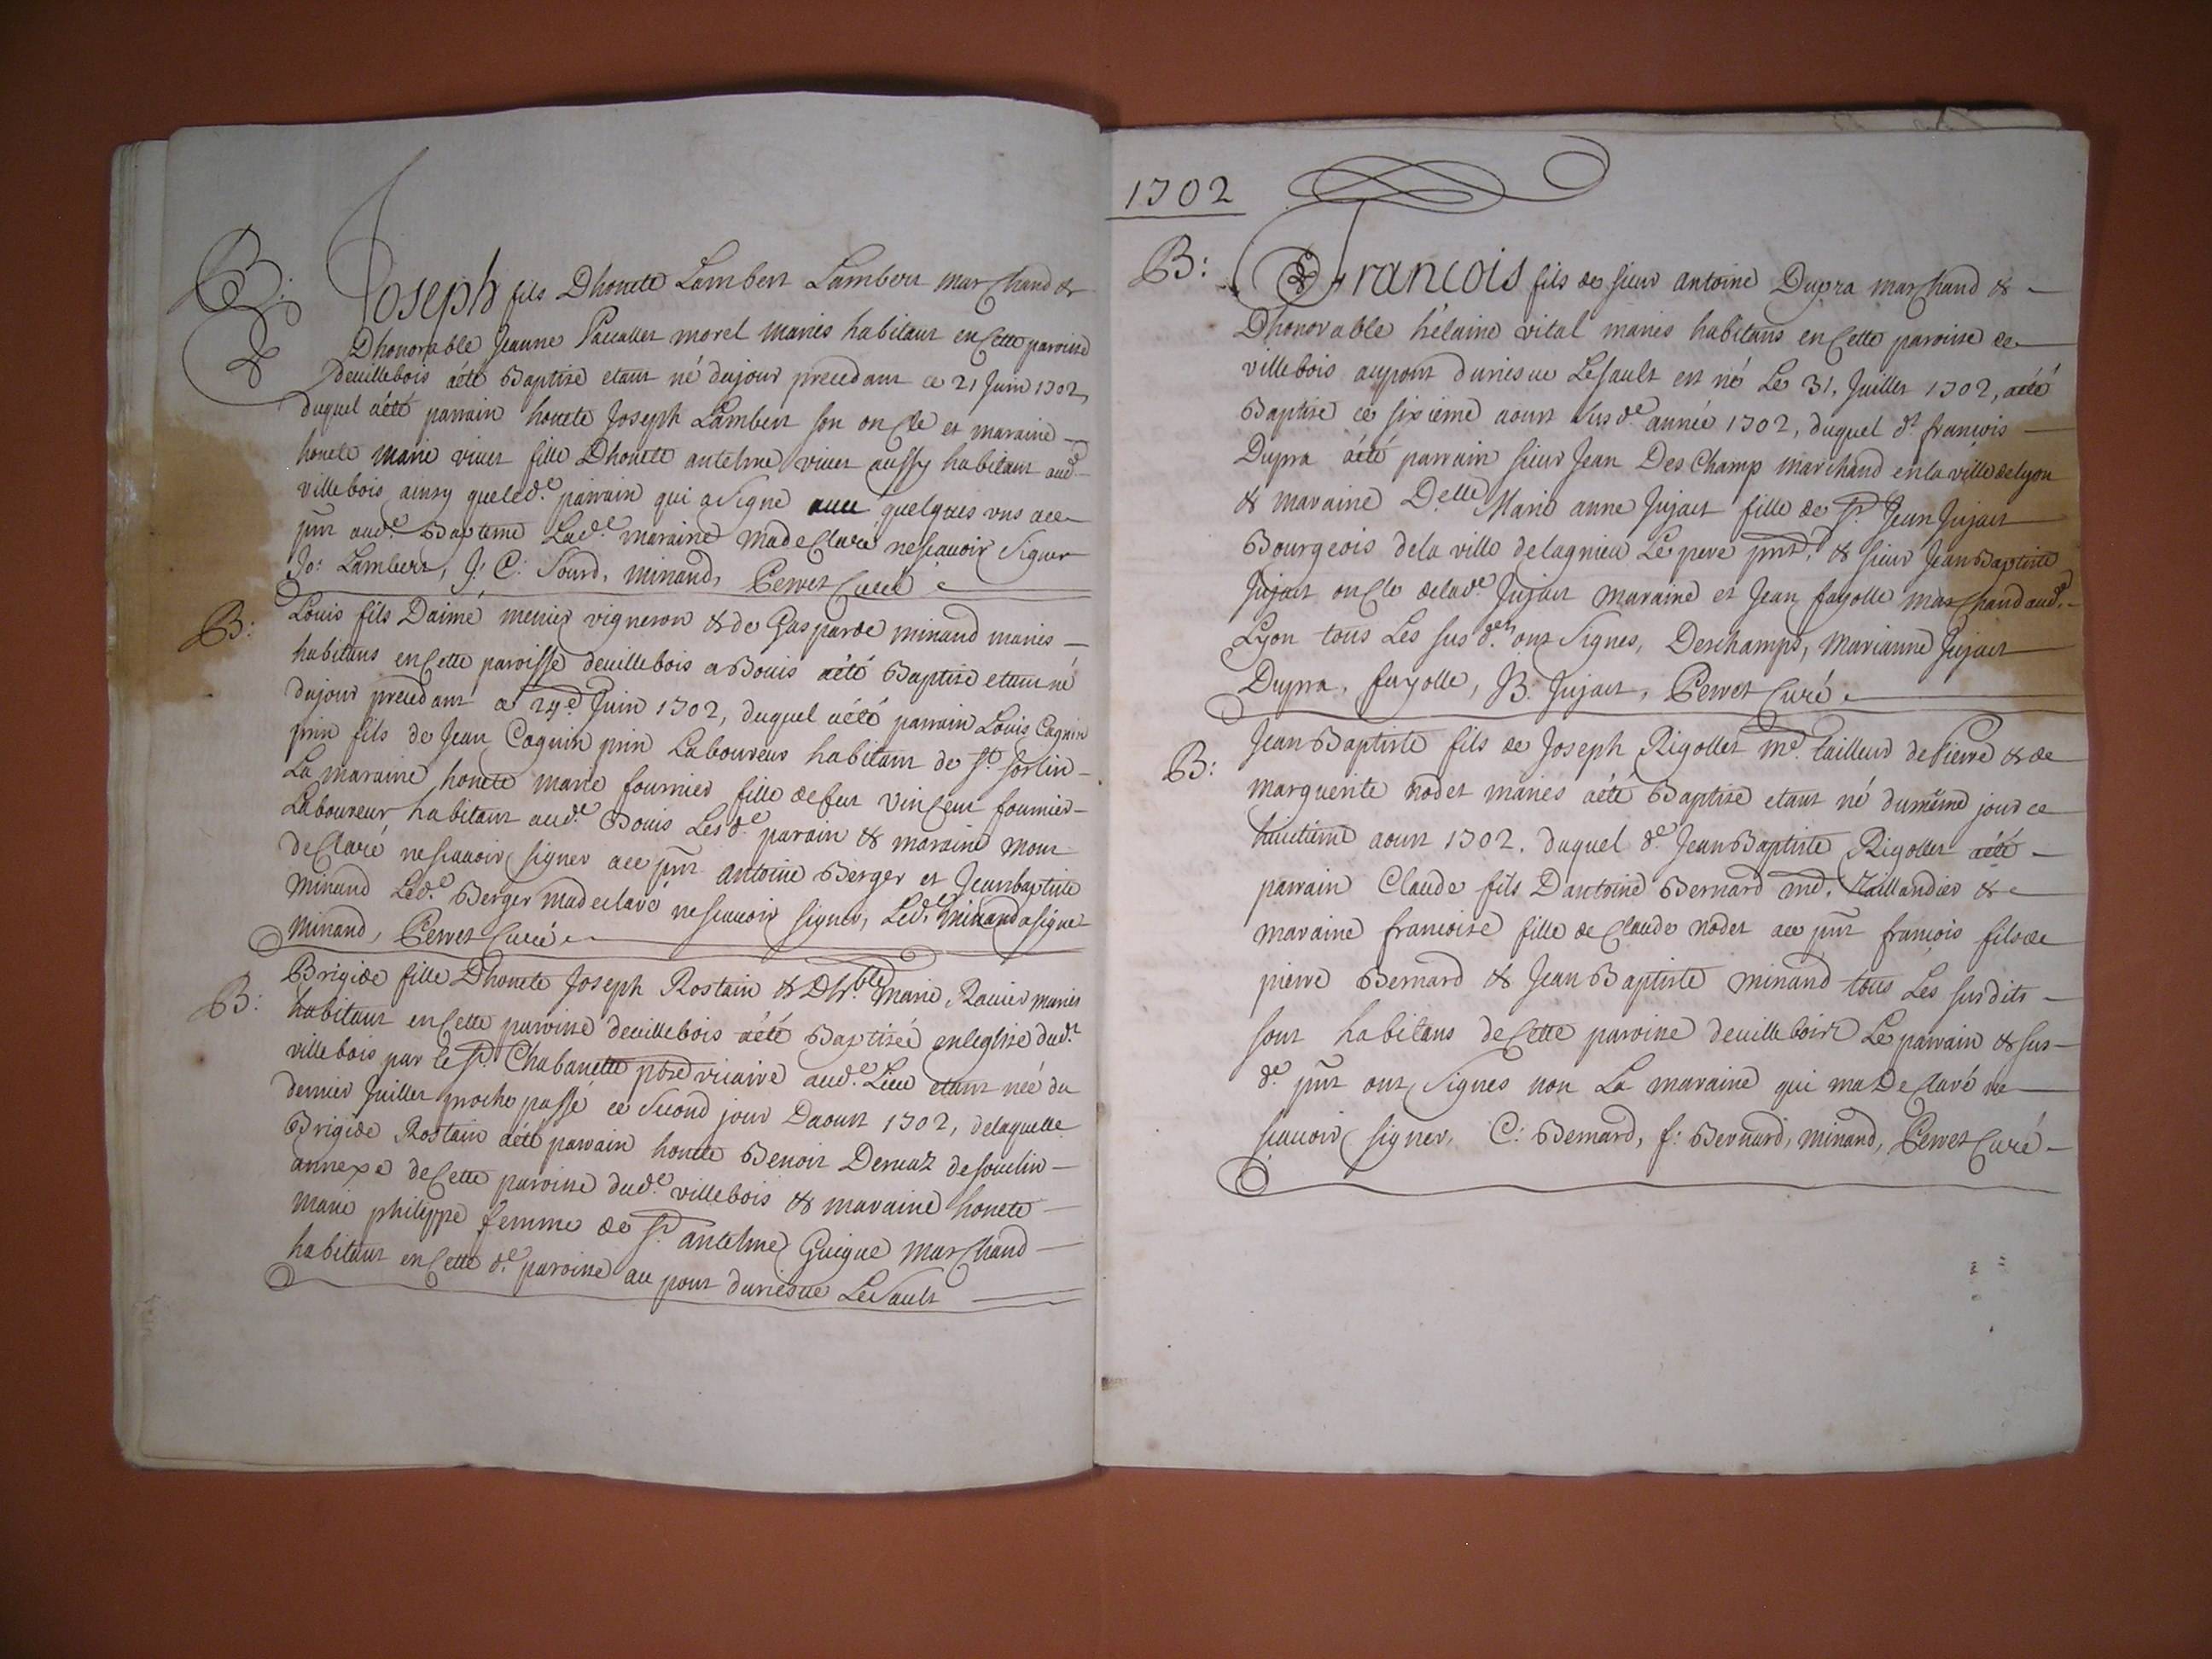 B: Joseph fils Dhonete Lambert Lambert marchand &
Dhonorable Jeanne morel mariés habitant en Cette paroisse
deuillebois aété Baptisé etant né dujour precedant ce 21 Juin 1702,
duquel aété parrain honete Joseph Lambert son oncle et maraine
honete Marie viuet fille Dhonete antelme viuet aussy habitant aud.
villebois ainsy queled.e parrain qui a Signé auec quelques vns ace
pnt aud.e Bapteme Lad.e maraine MadeClaré nescauoir Signer
Jo: Lambert, J: C: Sourd, minand, Perret Curé
B: Louis fils Daimé menier vigneron & de Gasparde minand mariés
habitans en Cette paroisse deuillebois a Bouis aété Baptisé etant né
dujour precedant ce 24e Juin 1702, duquel aété parrain Louis Cognin
prin fils de Jean Cognin prin Laboureur habitant de St. Sorlin
La maraine honete marie fournier fille defeu vinCent fournier
Laboureur habitant aud.e Bouis Lesd.e parain & maraine mont
deClaré nescauoir signer ace pnt antoine Berger et Jeanbaptiste
Minand Led.e Berger madeclaré nescauoir signer, Led.e Minand a signé
Minand, Perret Curé
B: Brigide fille Dhonete Joseph Rostain & Dhr.ble Marie mariés
habitant en Cette paroisse deuillebois aété Baptisée en leglise dud.e
villebois par le Sr. Chabanette pbre vicaire aud.e Lieu etant née du
dernier Juillet proche passé ce Second jour Daoust 1702, delaquelle
Brigide Rostain aété parrain honete Benoit Deruaz desouclin
annexe deCette paroisse dud.e villebois & maraine honete
Marie philippe femme de Sr. antelme Guigue marchand
habitant en Cette d.e paroisse au pont duriesue LeSault
1702
B: Francois fils de sieur antoine Dupra marchand &
Dhonorable hélaine vital mariés habitans en Cette paroisse de
villebois aupont duriesue LeSault est né Le 31. Juillet 1702, aété
Baptisé ce sixième aoust susd.e année 1702, duquel d.t francois
Dupra aété parrain sieur Jean Des Champ marchand en la ville de lyon
& maraine D.elle Marie anne Jujat fille de Sr. Jean Jujat
Bourgeois dela ville delagnieu Le pere pnt, & sieur Jean Baptiste
Jujat oncle delad.e Jujat maraine et Jean fayolle marchand aud.
Lyon tous Les susd.es ont Signés, Deschamps, Marianne Jujat
Dupra, fayolle, JB. Jujat, Perret Curé
B: Jean Baptiste fils de Joseph Rigollet me. tailleur de Pierre & de
marguerite nodet mariés aété Baptisé etant né dumême jour ce
huitième aoust 1702. duquel d.e Jean Baptiste Rigollet aété
parrain Claude fils Dantoine Bernard md. Taillandier &
maraine francoise fille de Claude nodet ace pnt francois fils de
pierre Bernard & Jean Baptiste minand tous Les susdits
sont habitans deCette paroisse deuillebois Le parrain & sus
d.e pnt ont Signés non La maraine qui ma DeClaré ne
scauoir signer, C: Bernard, f: Bernard, minand, Perret Curé